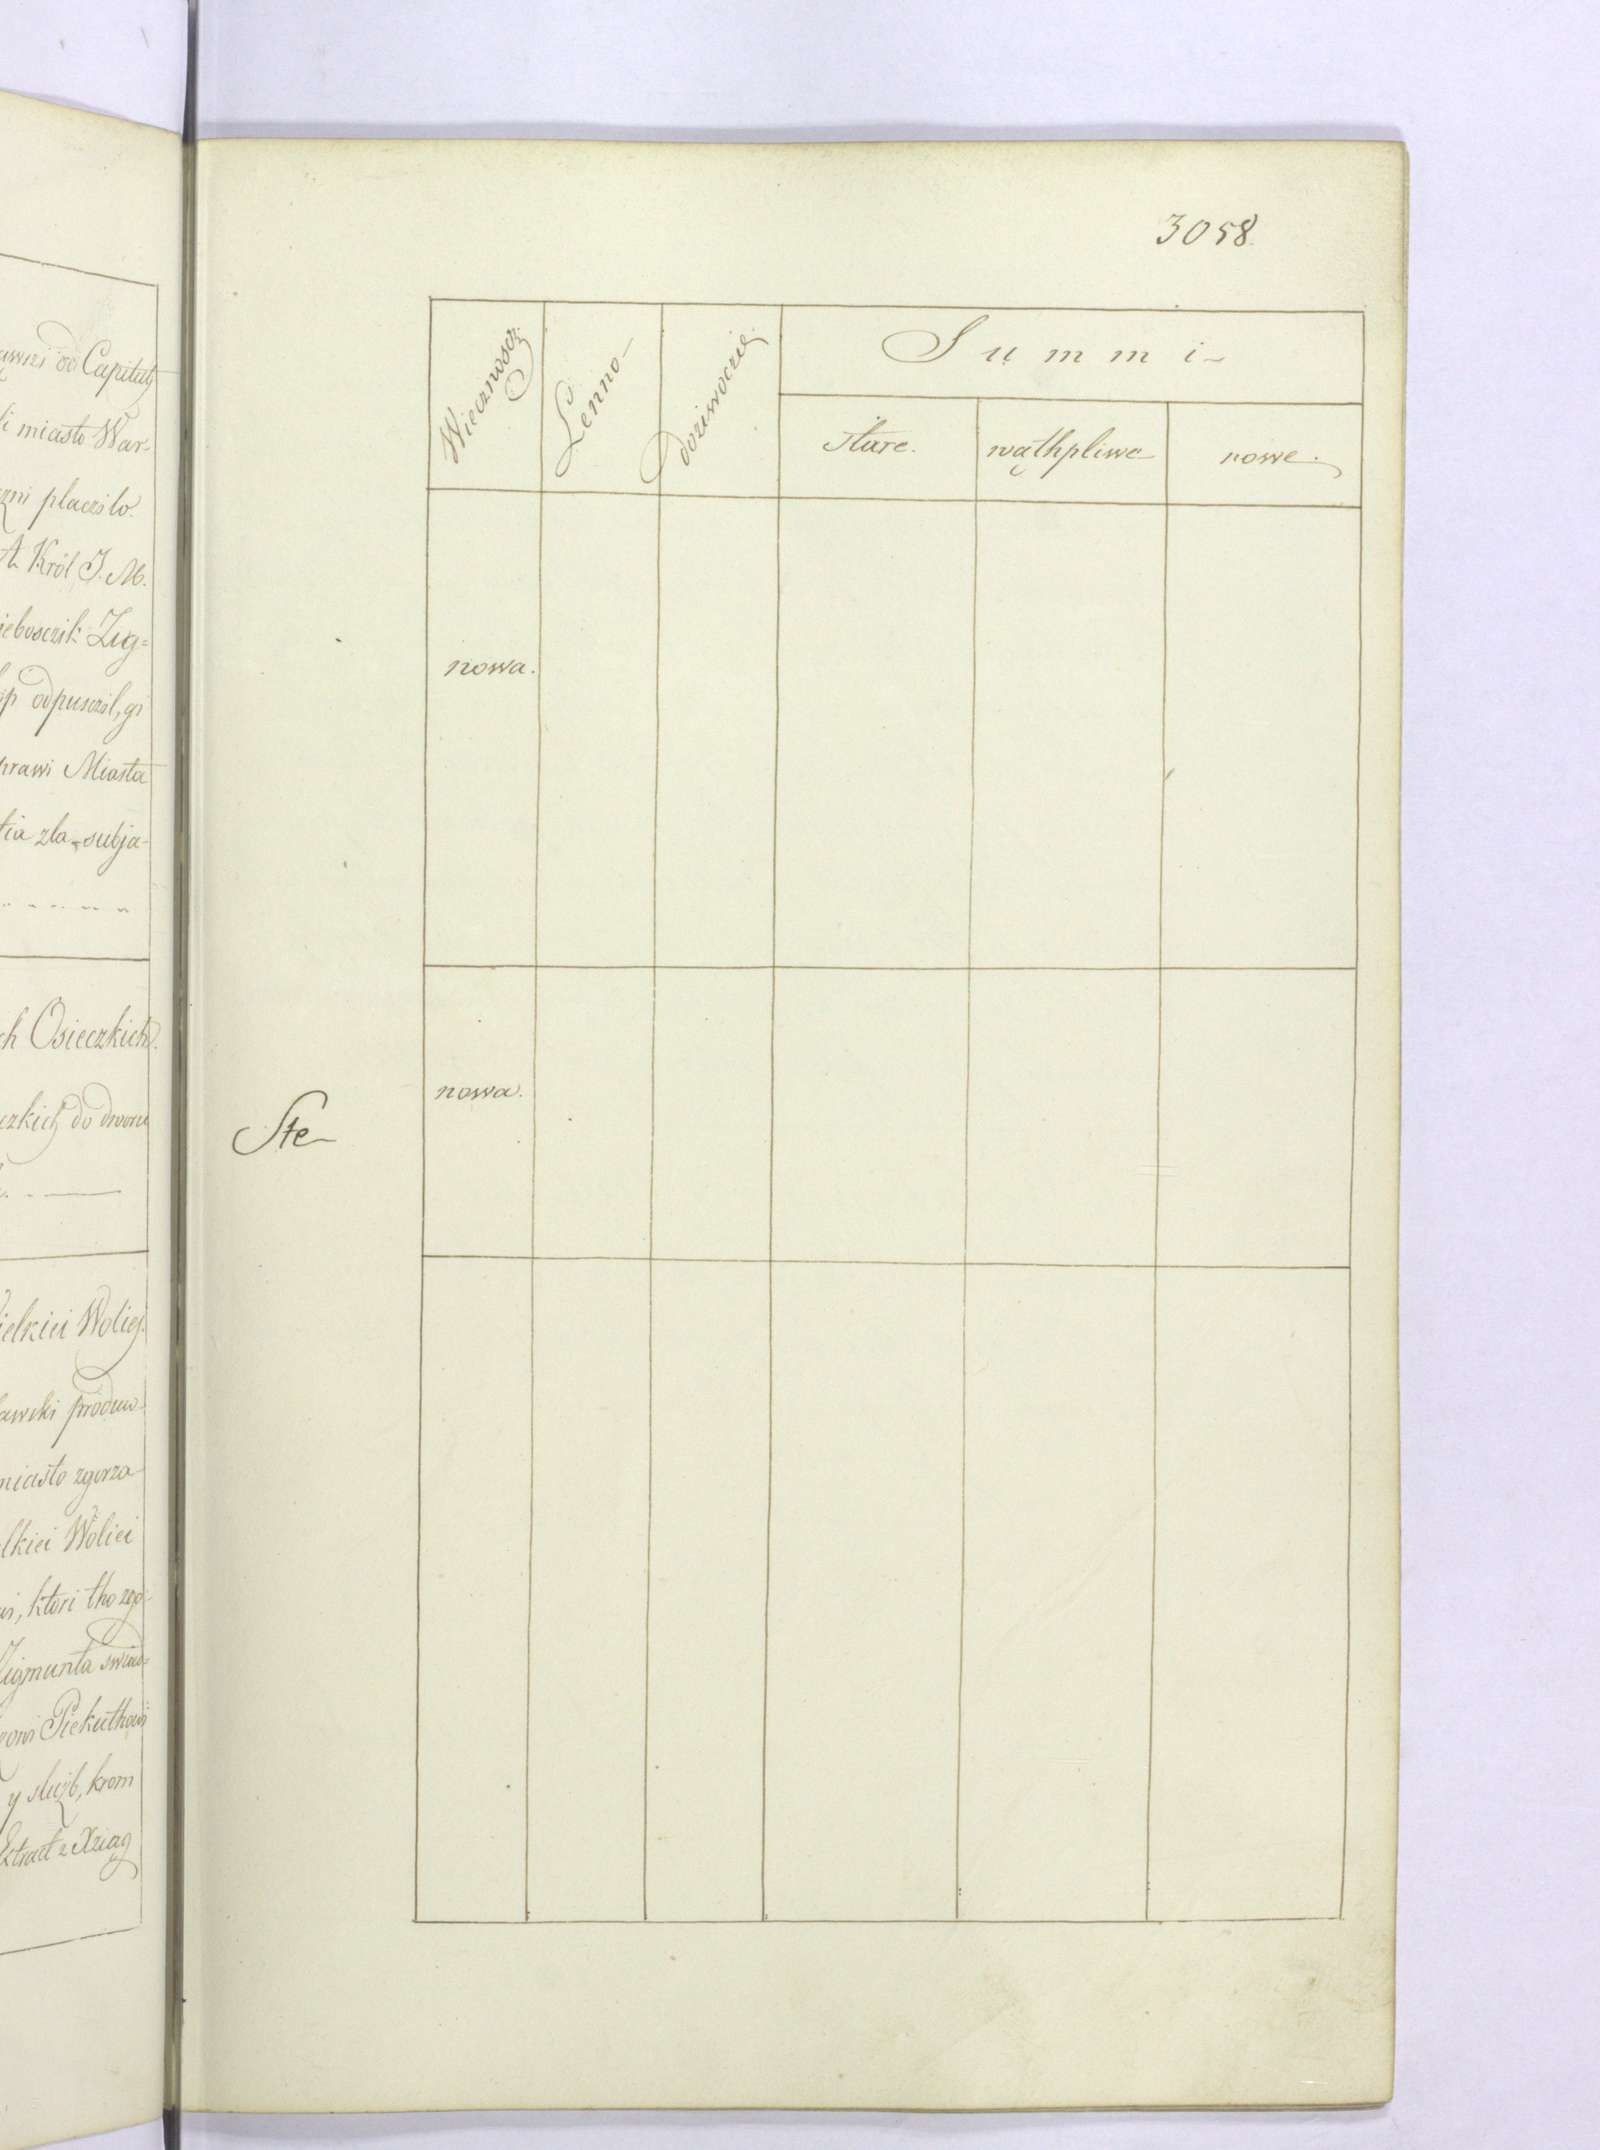 awszi od Capituły
li miasto War-
czni placzilo.
A. Król J. M.
iebosczik Zig=
odpusczil, gi
prawi Miasta
tia zla, subja-
ch Osieczkich.
czkich do dworu
ielkiei Woliei
awski produw-
miasto zgorza
lkiei Woliei
ktori tho zgo-
Zigmunta swiad-
Piekuthowi
y służb, krom
Extract z Xiąg
3058.
Wiecznoscz.
Lenno-
Doziwoczie.
Summi-
stare.
wąthpliwe
nowe.
nowa.
nowa.
Ste-